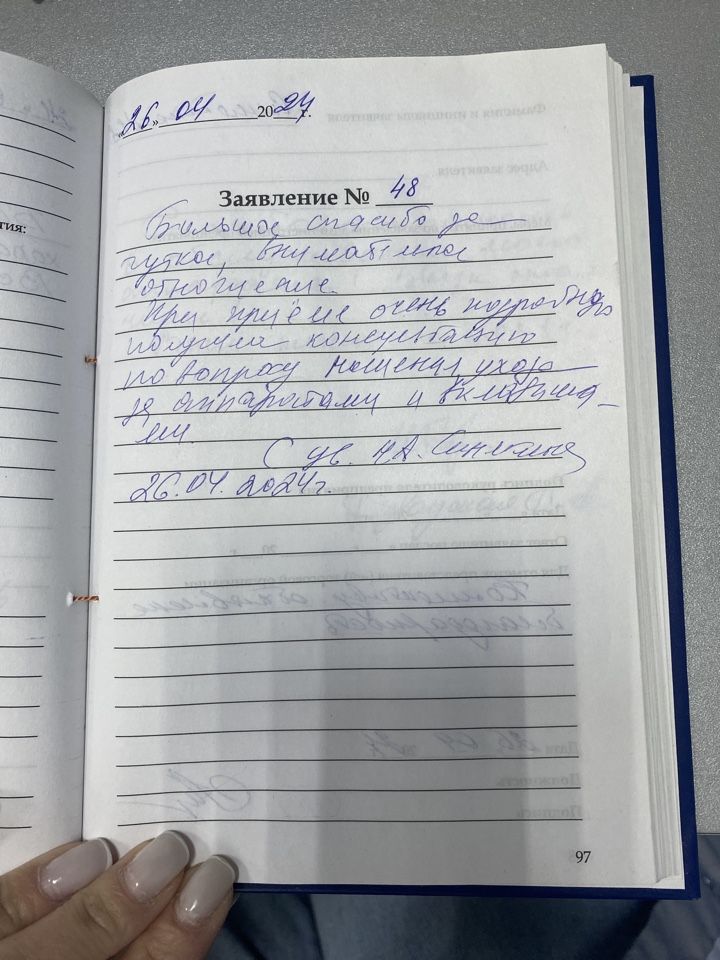 «26» 04 2024 г.
Заявление № 48
Большое спасибо за
чуткое, внимательное
отношение.
При приёме очень подробную
получила консультацию
по вопросу ношения, ухода
за аппаратами и вкладыша-
ми.
С ув. Н.А.
26.04.2024г.
тия:
97